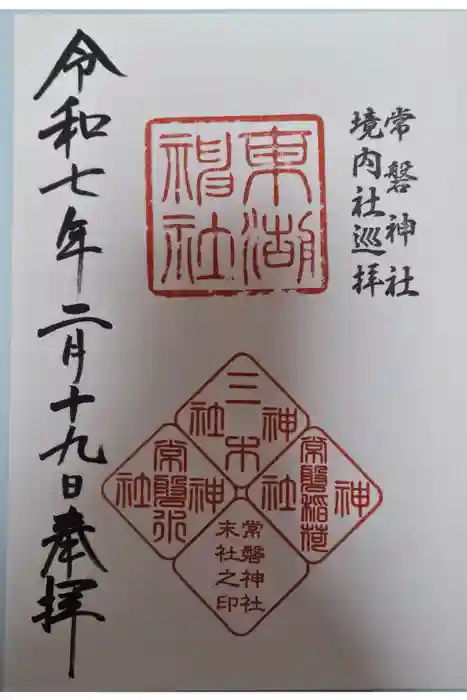 常磐神社
境内社巡拝
東湖
神社
三木
神社
常磐稲荷
神社
常磐水
神社
常磐神社
末社之印
令和七年二月十九日奉拝